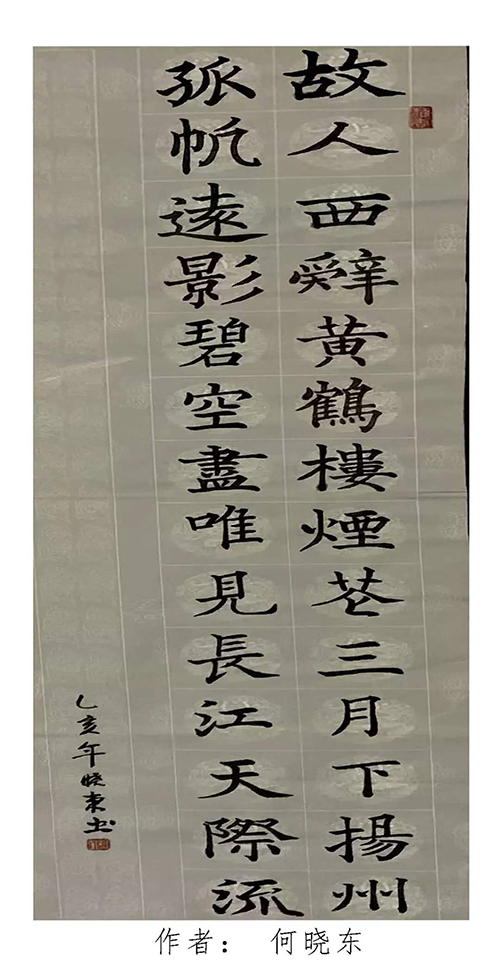 故人西辭黄鶴樓煙花三月下揚州
孤帆遠影碧空盡唯見長江天際流
乙亥年晓東书
作者： 何晓东